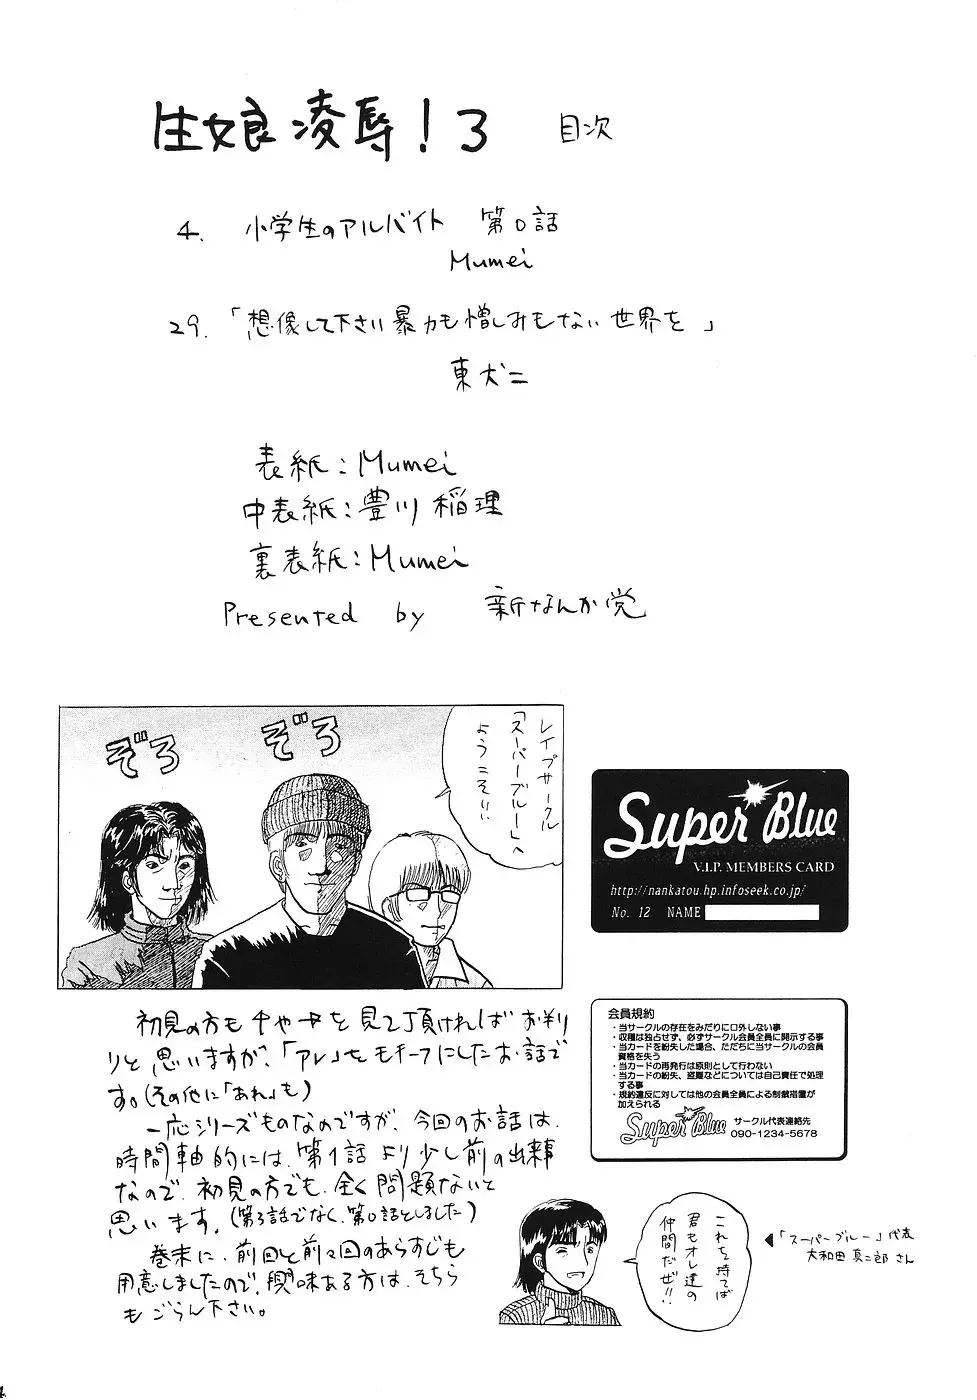 生娘凌辱！3 目次
4. 小学生のアルバイト 第0話
Mumei
29.「想像して下さい暴力も憎しみもない世界を」
東犬二
表紙：Mumei
中表紙：豊川稲理
裏表紙：Mumei
Presented by 新なんか党
レイプサークル
「スーパーブルー」へ
ようこそ!!
ぞろ
ぞろ
Super Blue
V.I.P. MEMBERS CARD
http://nankatou.hp.infoseek.co.jp/
No. 12 NAME
初見の方もチャートを見て頂ければお判
りと思いますが、「アレ」をモチーフにしたお話で
す。(その他に「あれ」も)
一応シリーズものなのですが、今回のお話は、
時間軸的には、第1話より少し前の出来事
なので、初見の方でも、全く問題ないと
思います。(第3話でなく、第0話としました)
巻末に、前回と前々回のあらすじも
用意しましたので、興味ある方は、そちら
もごらん下さい。
会員規約
・当サークルの存在をみだりに口外しない事
・収穫は独占せず、必ずサークル会員全員に開示する事
・当カードを紛失した場合、ただちに当サークルの会員
資格を失う
・当カードの再発行は原則として行わない
・当カードの紛失、盗難などについては自己責任で処理
する事
・規約違反に対しては他の会員全員による制裁措置が
加えられる
Super Blue
サークル代表連絡先
090-1234-5678
これを持てば
君もオレ達の
仲間だぜ!!
◀「スーパーブルー」代表
大和田真二郎さん